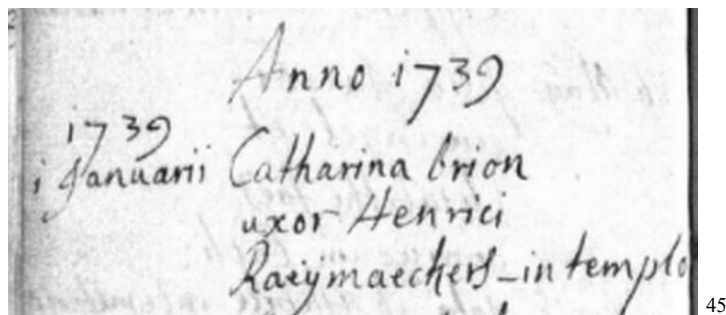 Anno 1739
1739
i Januarii Catharina brion
uxor Henrici
Raeijmaeckers - in templo
45